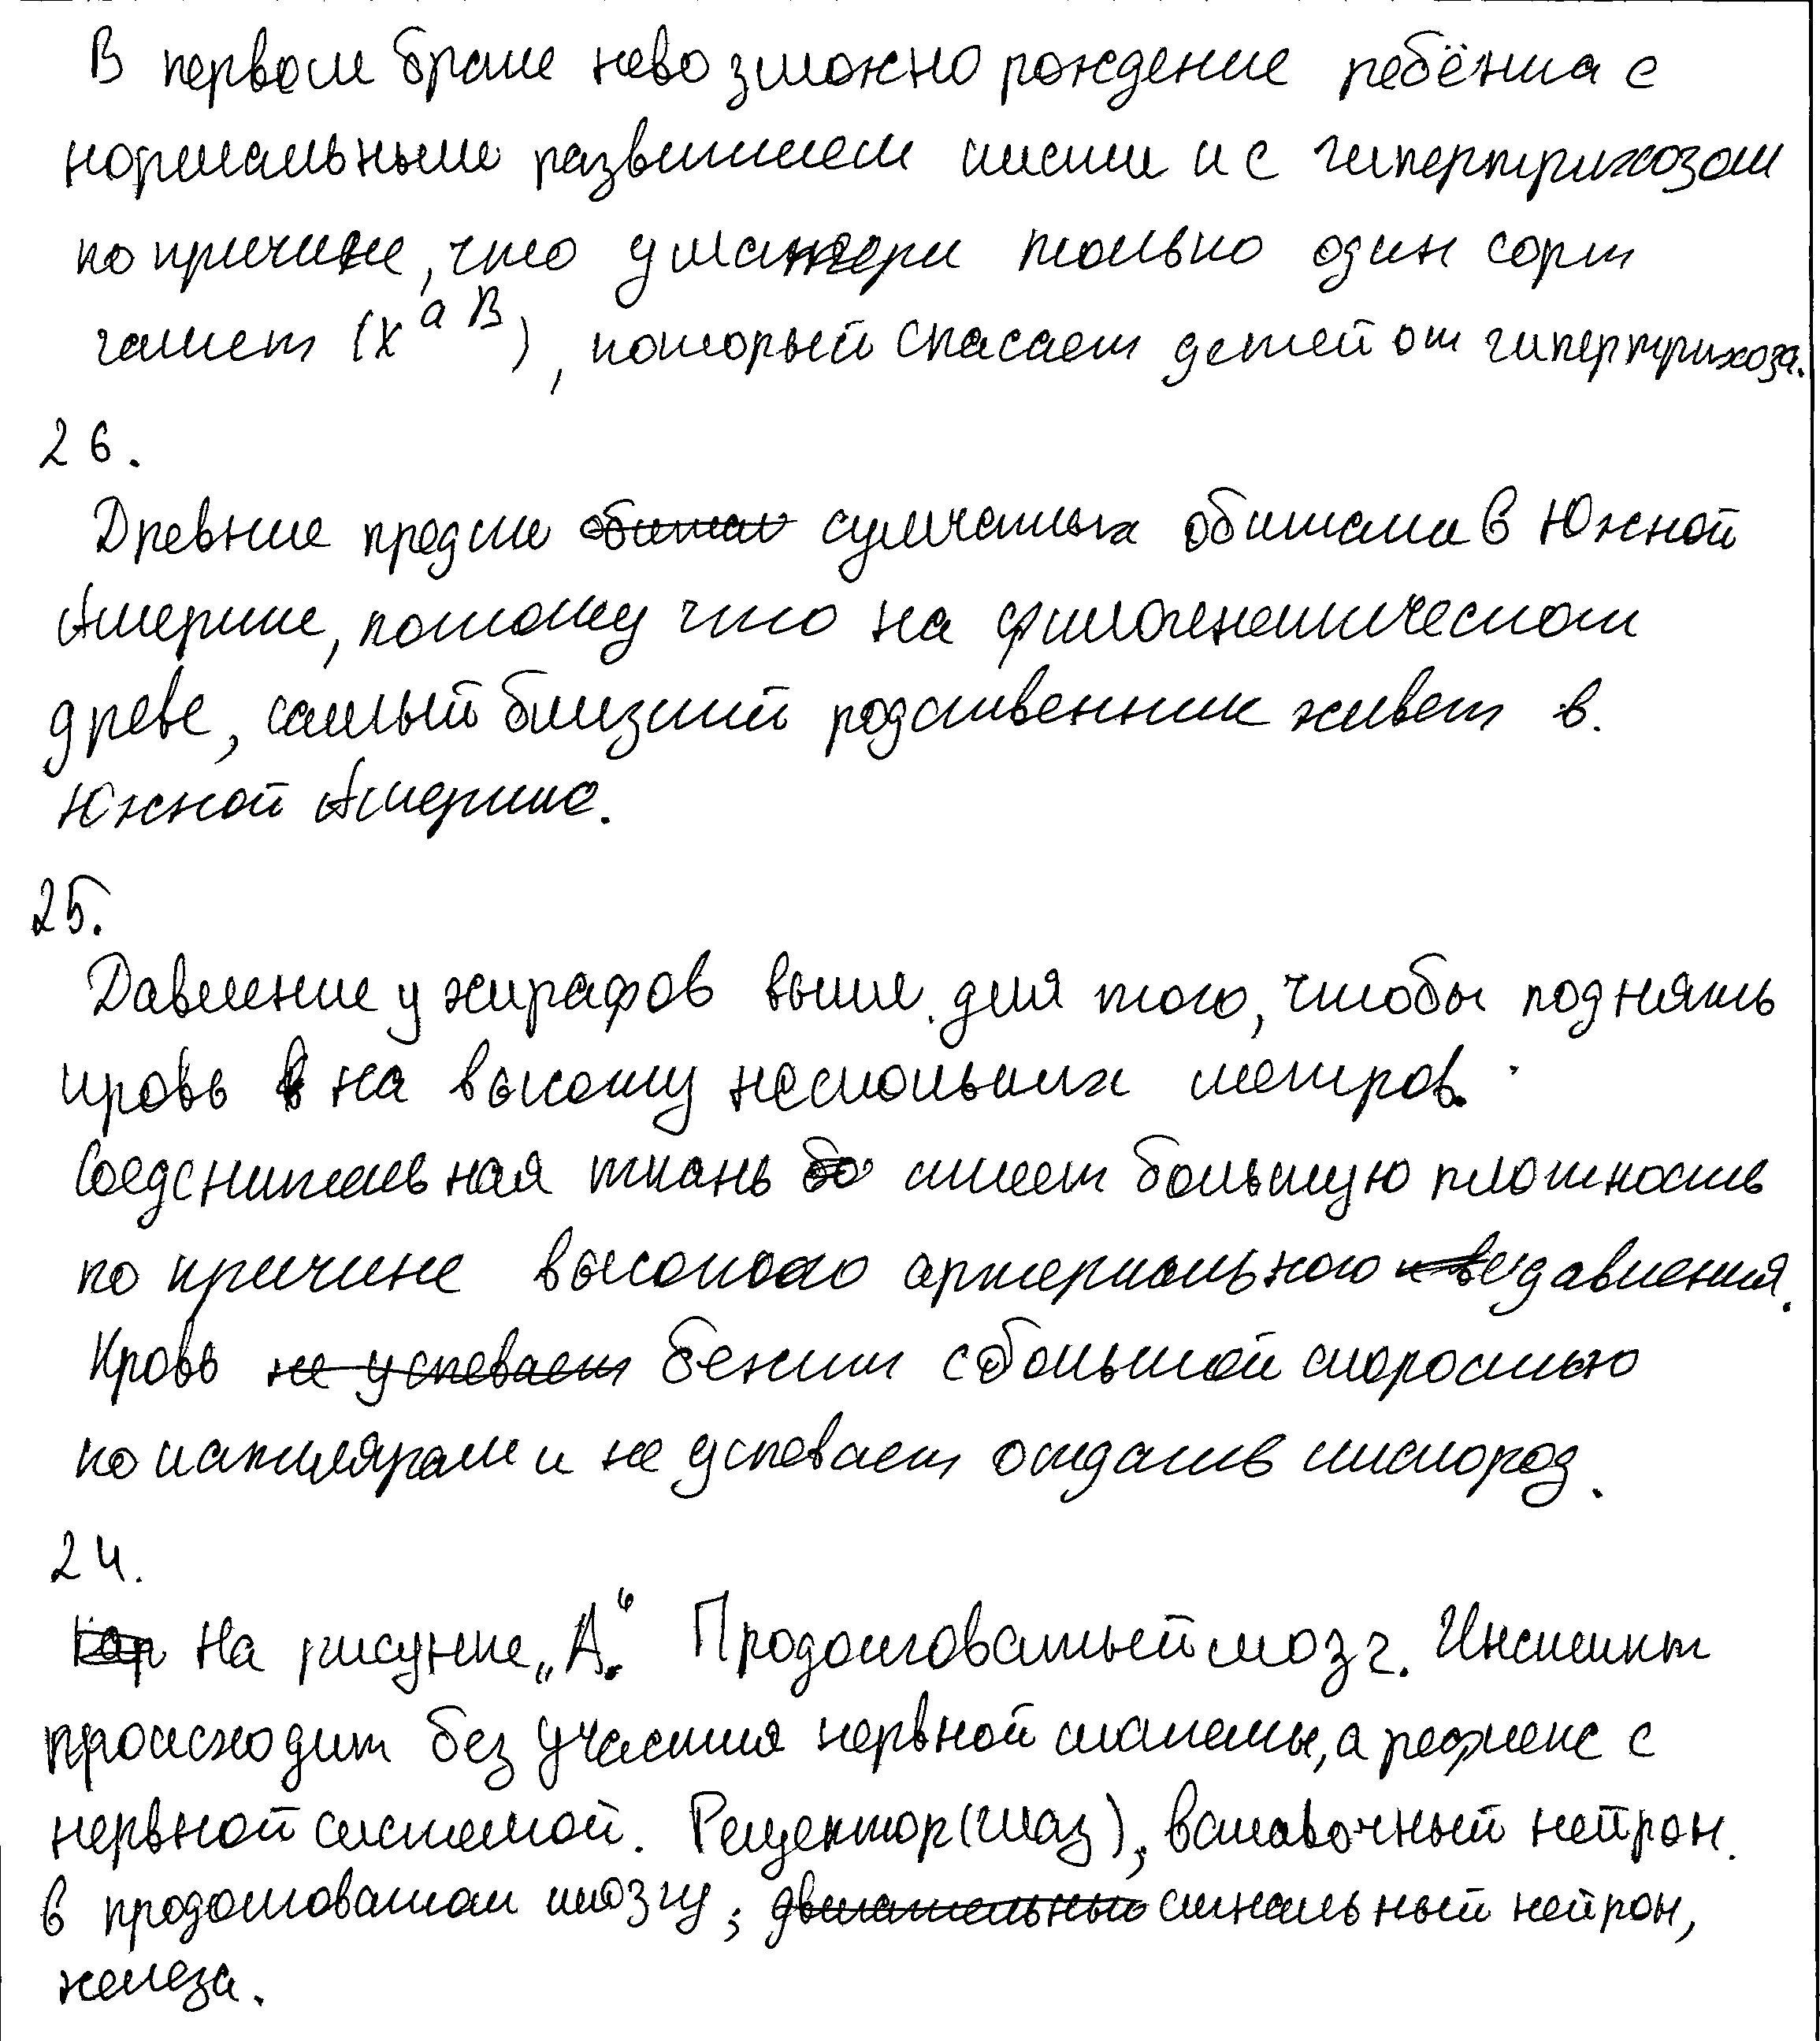 В первом браке невозможно рождение ребёнка с
нормальным развитием кисти и с гипертрихозом
по причине, что у матери только один сорт
гамет (X^aB), который спасает детей от гипертрихоза.
26.
Древние предки сумчатых обитали в Южной
Америке, потому что на филогенетическом
древе, самый близкий родственник живет в
Южной Америке.
25.
Давление у жирафов выше для того, чтобы поднять
кровь на высоту нескольких метров.
Соединительная ткань имеет большую плотность
по причине высокого артериального давления.
Кровь бежит с большой скоростью
по капилярам и не успевает отдать кислород.
24.
На рисунке „А“. Продолговатый мозг. Инстинкт
происходит без участия нервной системы, а рефлекс с
нервной системой. Рецептор (глаз), вставочный нейрон
в продолговатом мозгу; сигнальный нейрон,
железа.